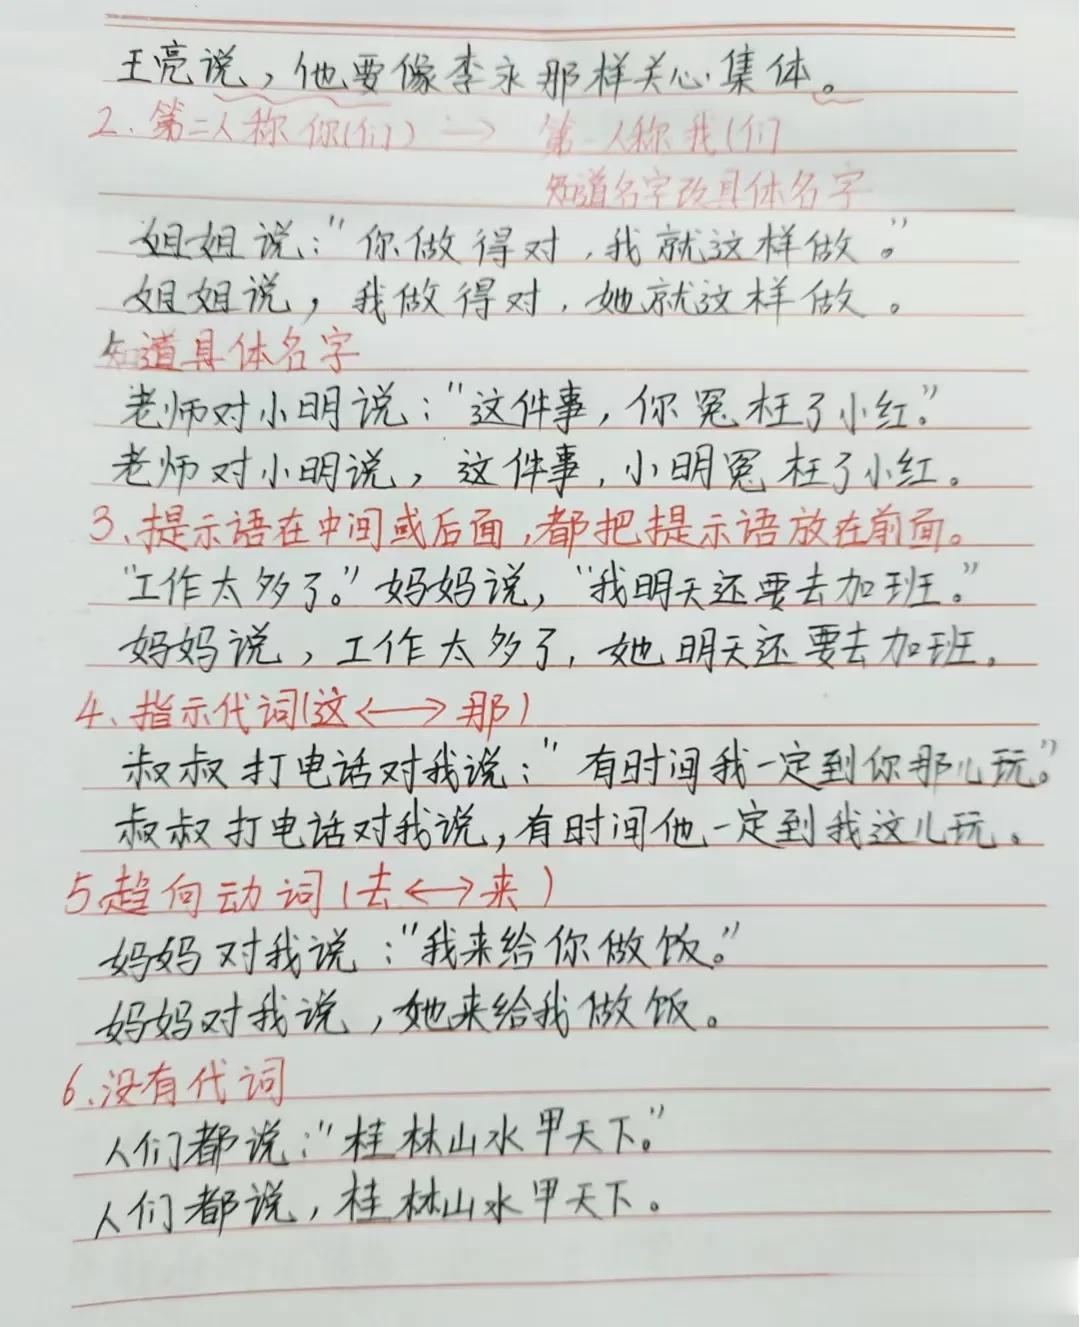 王亮说，他要像李永那样关心集体。
2、第二人称你(们) → 第一人称我(们
知道名字改具体名字
姐姐说：“你做得对，我就这样做。”
姐姐说，我做得对，她就这样做。
知道具体名字
老师对小明说：“这件事，你冤枉了小红。”
老师对小明说，这件事，小明冤枉了小红。
3、提示语在中间或后面，都把提示语放在前面。
“工作太多了。”妈妈说，“我明天还要去加班。”
妈妈说，工作太多了，她明天还要去加班。
4、指示代词(这⟷那)
叔叔打电话对我说：“有时间我一定到你那儿玩。”
叔叔打电话对我说，有时间他一定到我这儿玩。
5趋向动词(去⟷来)
妈妈对我说：“我来给你做饭。”
妈妈对我说，她来给我做饭。
6、没有代词
人们都说：“桂林山水甲天下。”
人们都说，桂林山水甲天下。